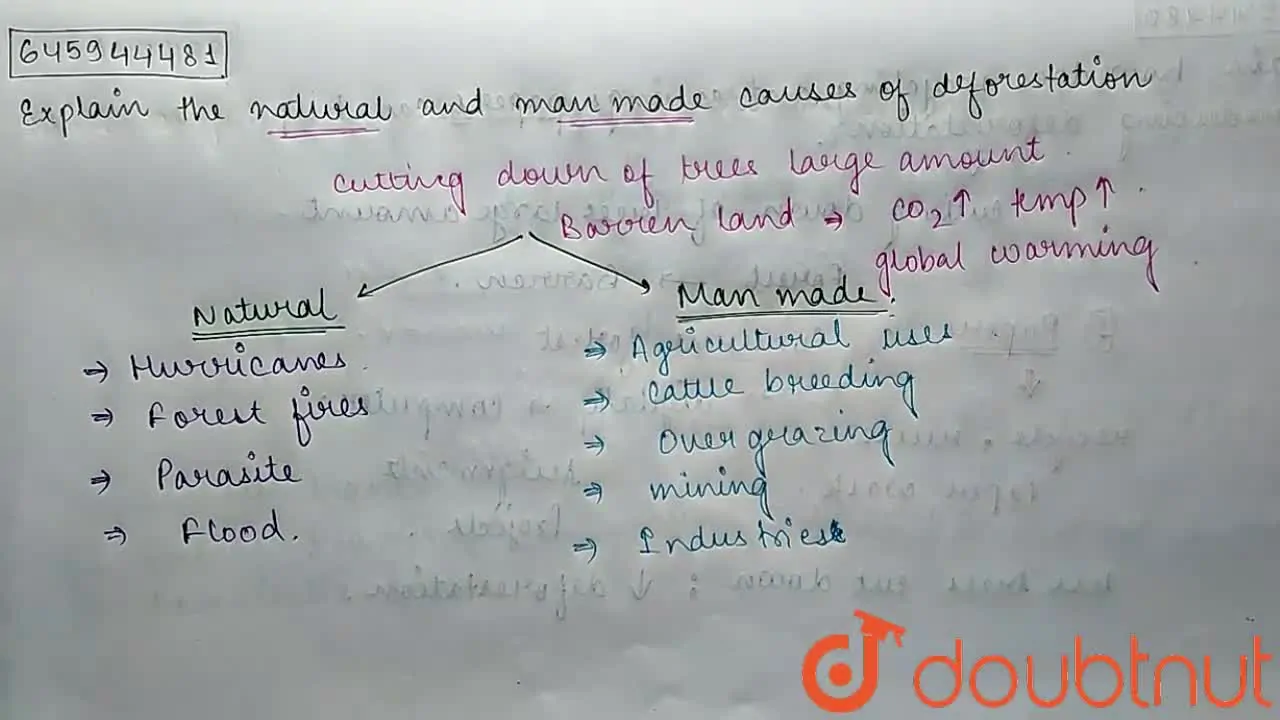 645944481
Explain the natural and man made causes of deforestation
cutting down of trees large amount.
Barren land ⇒ CO2↑ temp↑.
global warming
Natural
⇒ Hurricanes.
⇒ Forest fires
⇒ Parasite
⇒ Flood.
Man made.
⇒ Agricultural uses
⇒ cattle breeding
⇒ Over grazing
⇒ mining
⇒ Industries
doubtnut